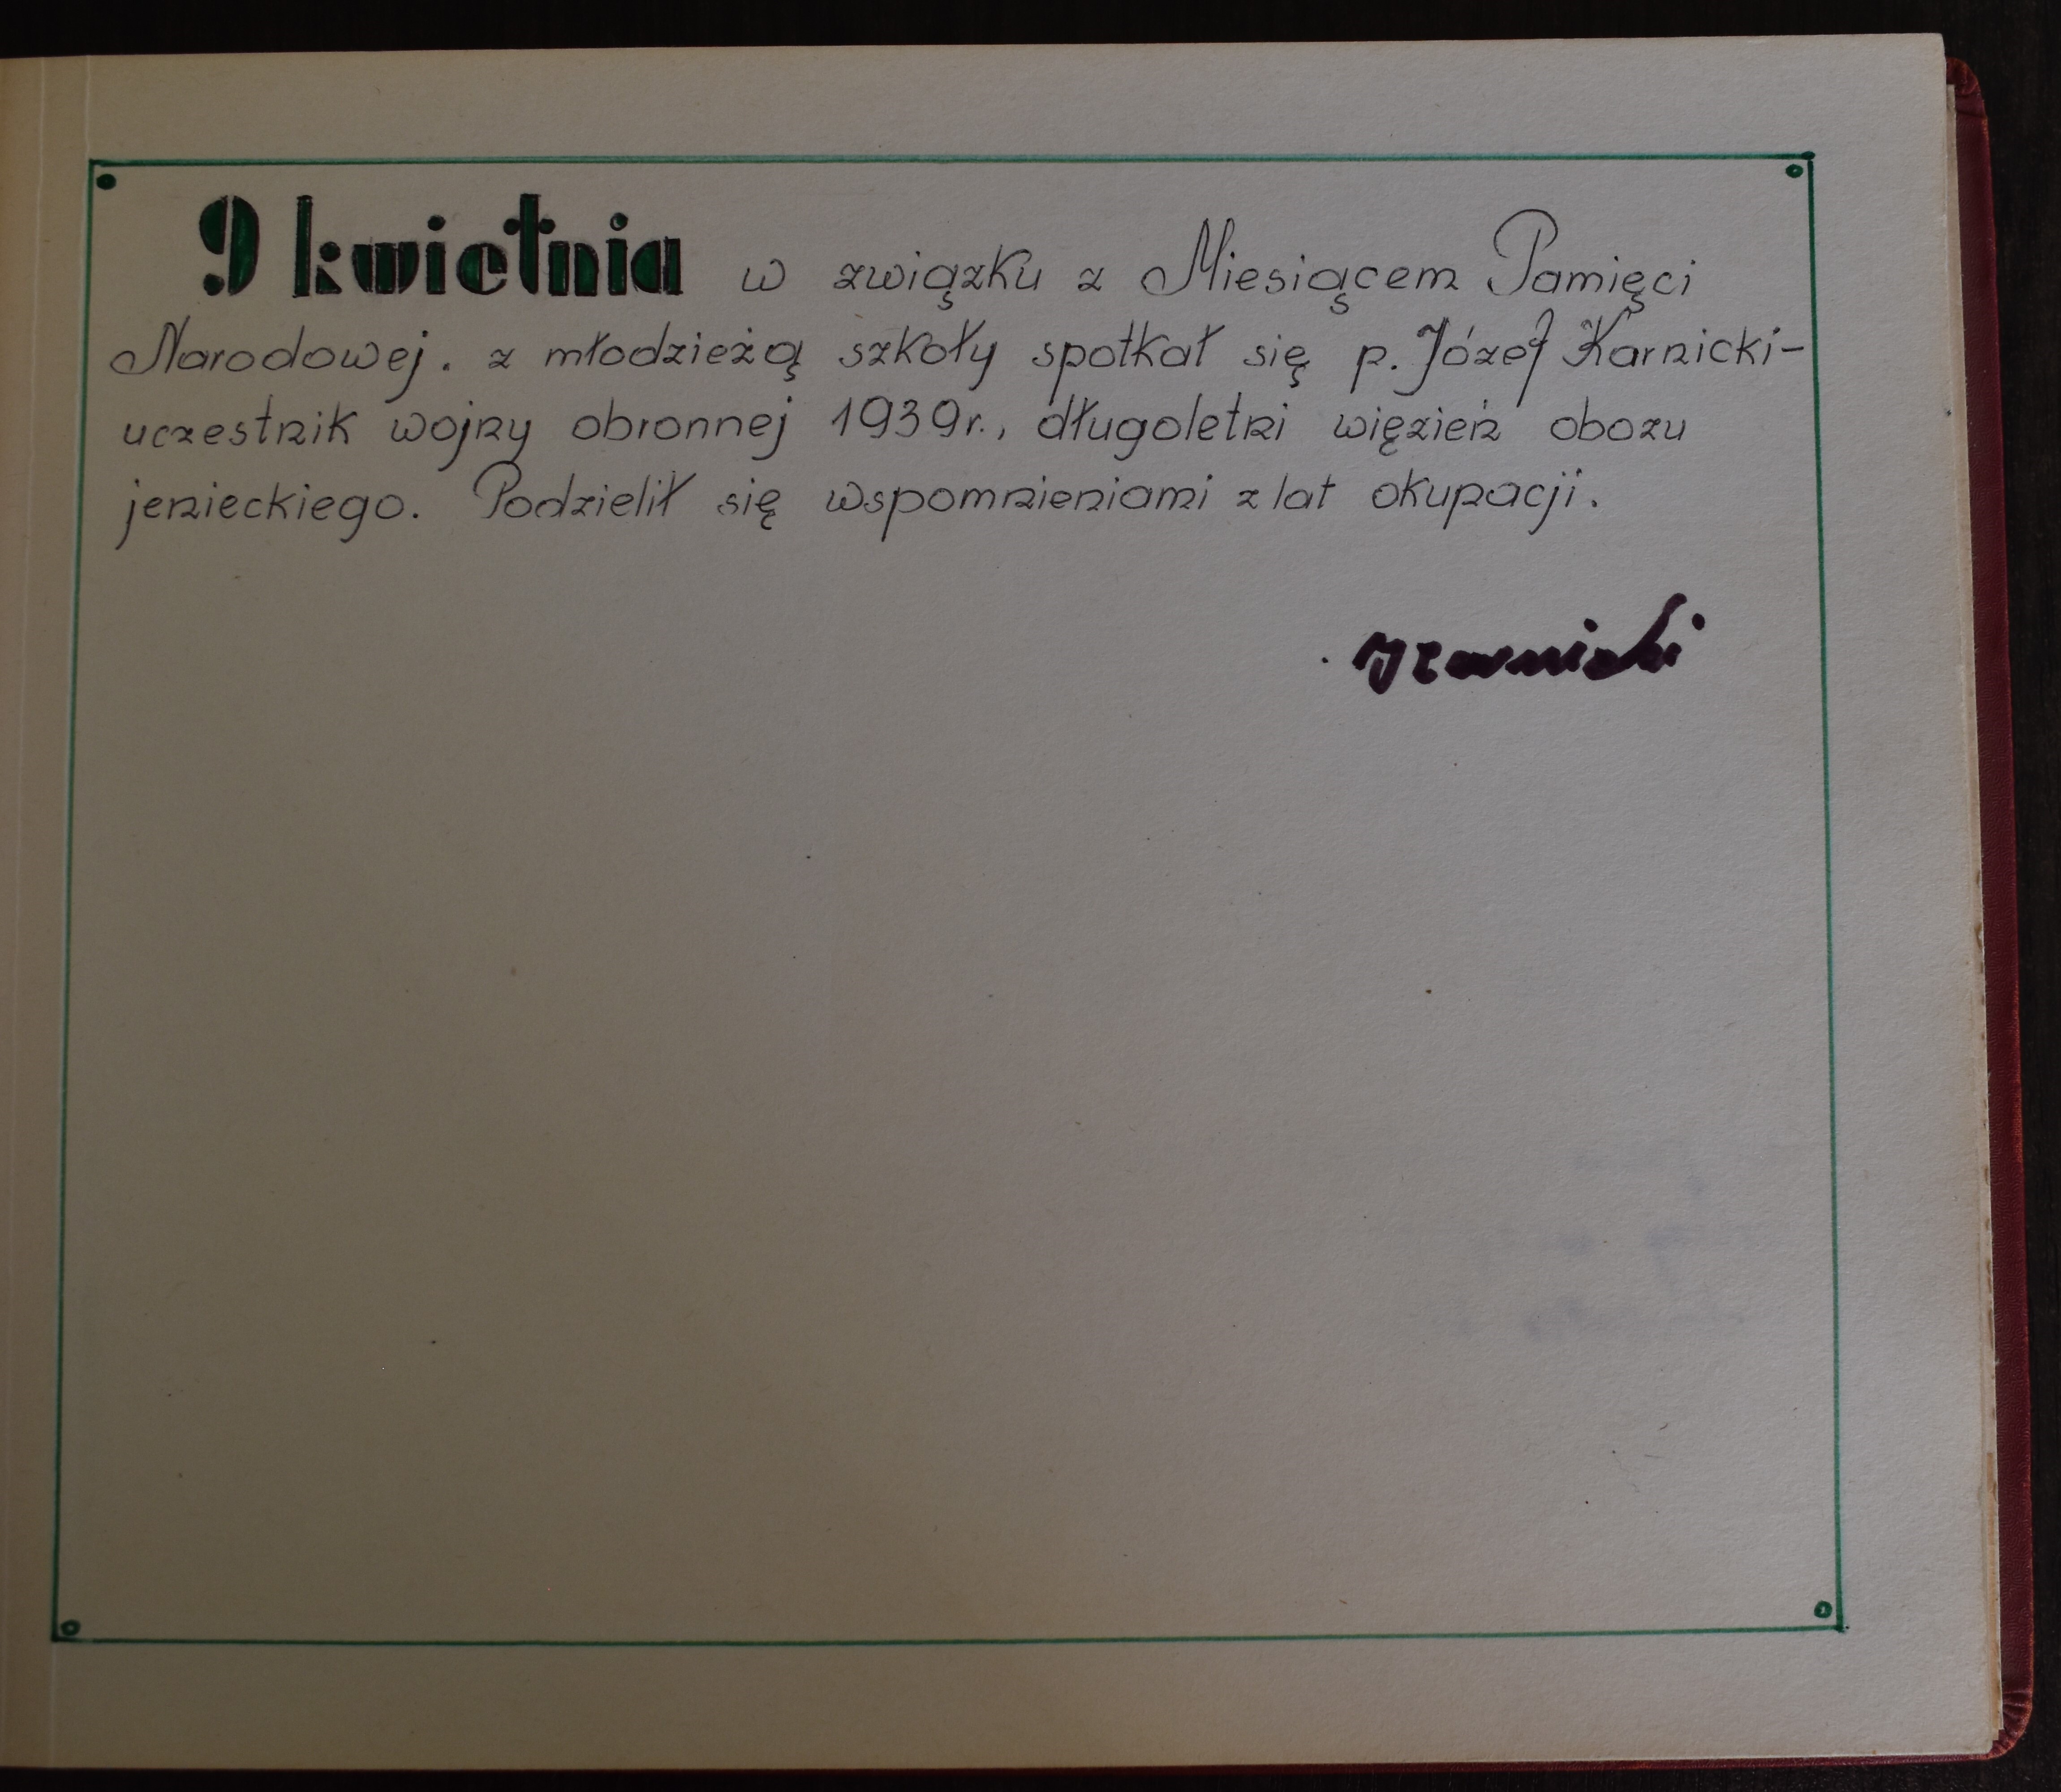 9 kwietnia w związku z Miesiącem Pamięci
Narodowej. z młodzieżą szkoły spotkał się p. Józef Karnicki-
uczestnik wojny obronnej 1939r., długoletni więzień obozu
jenieckiego. Podzielił się wspomnieniami z lat okupacji.